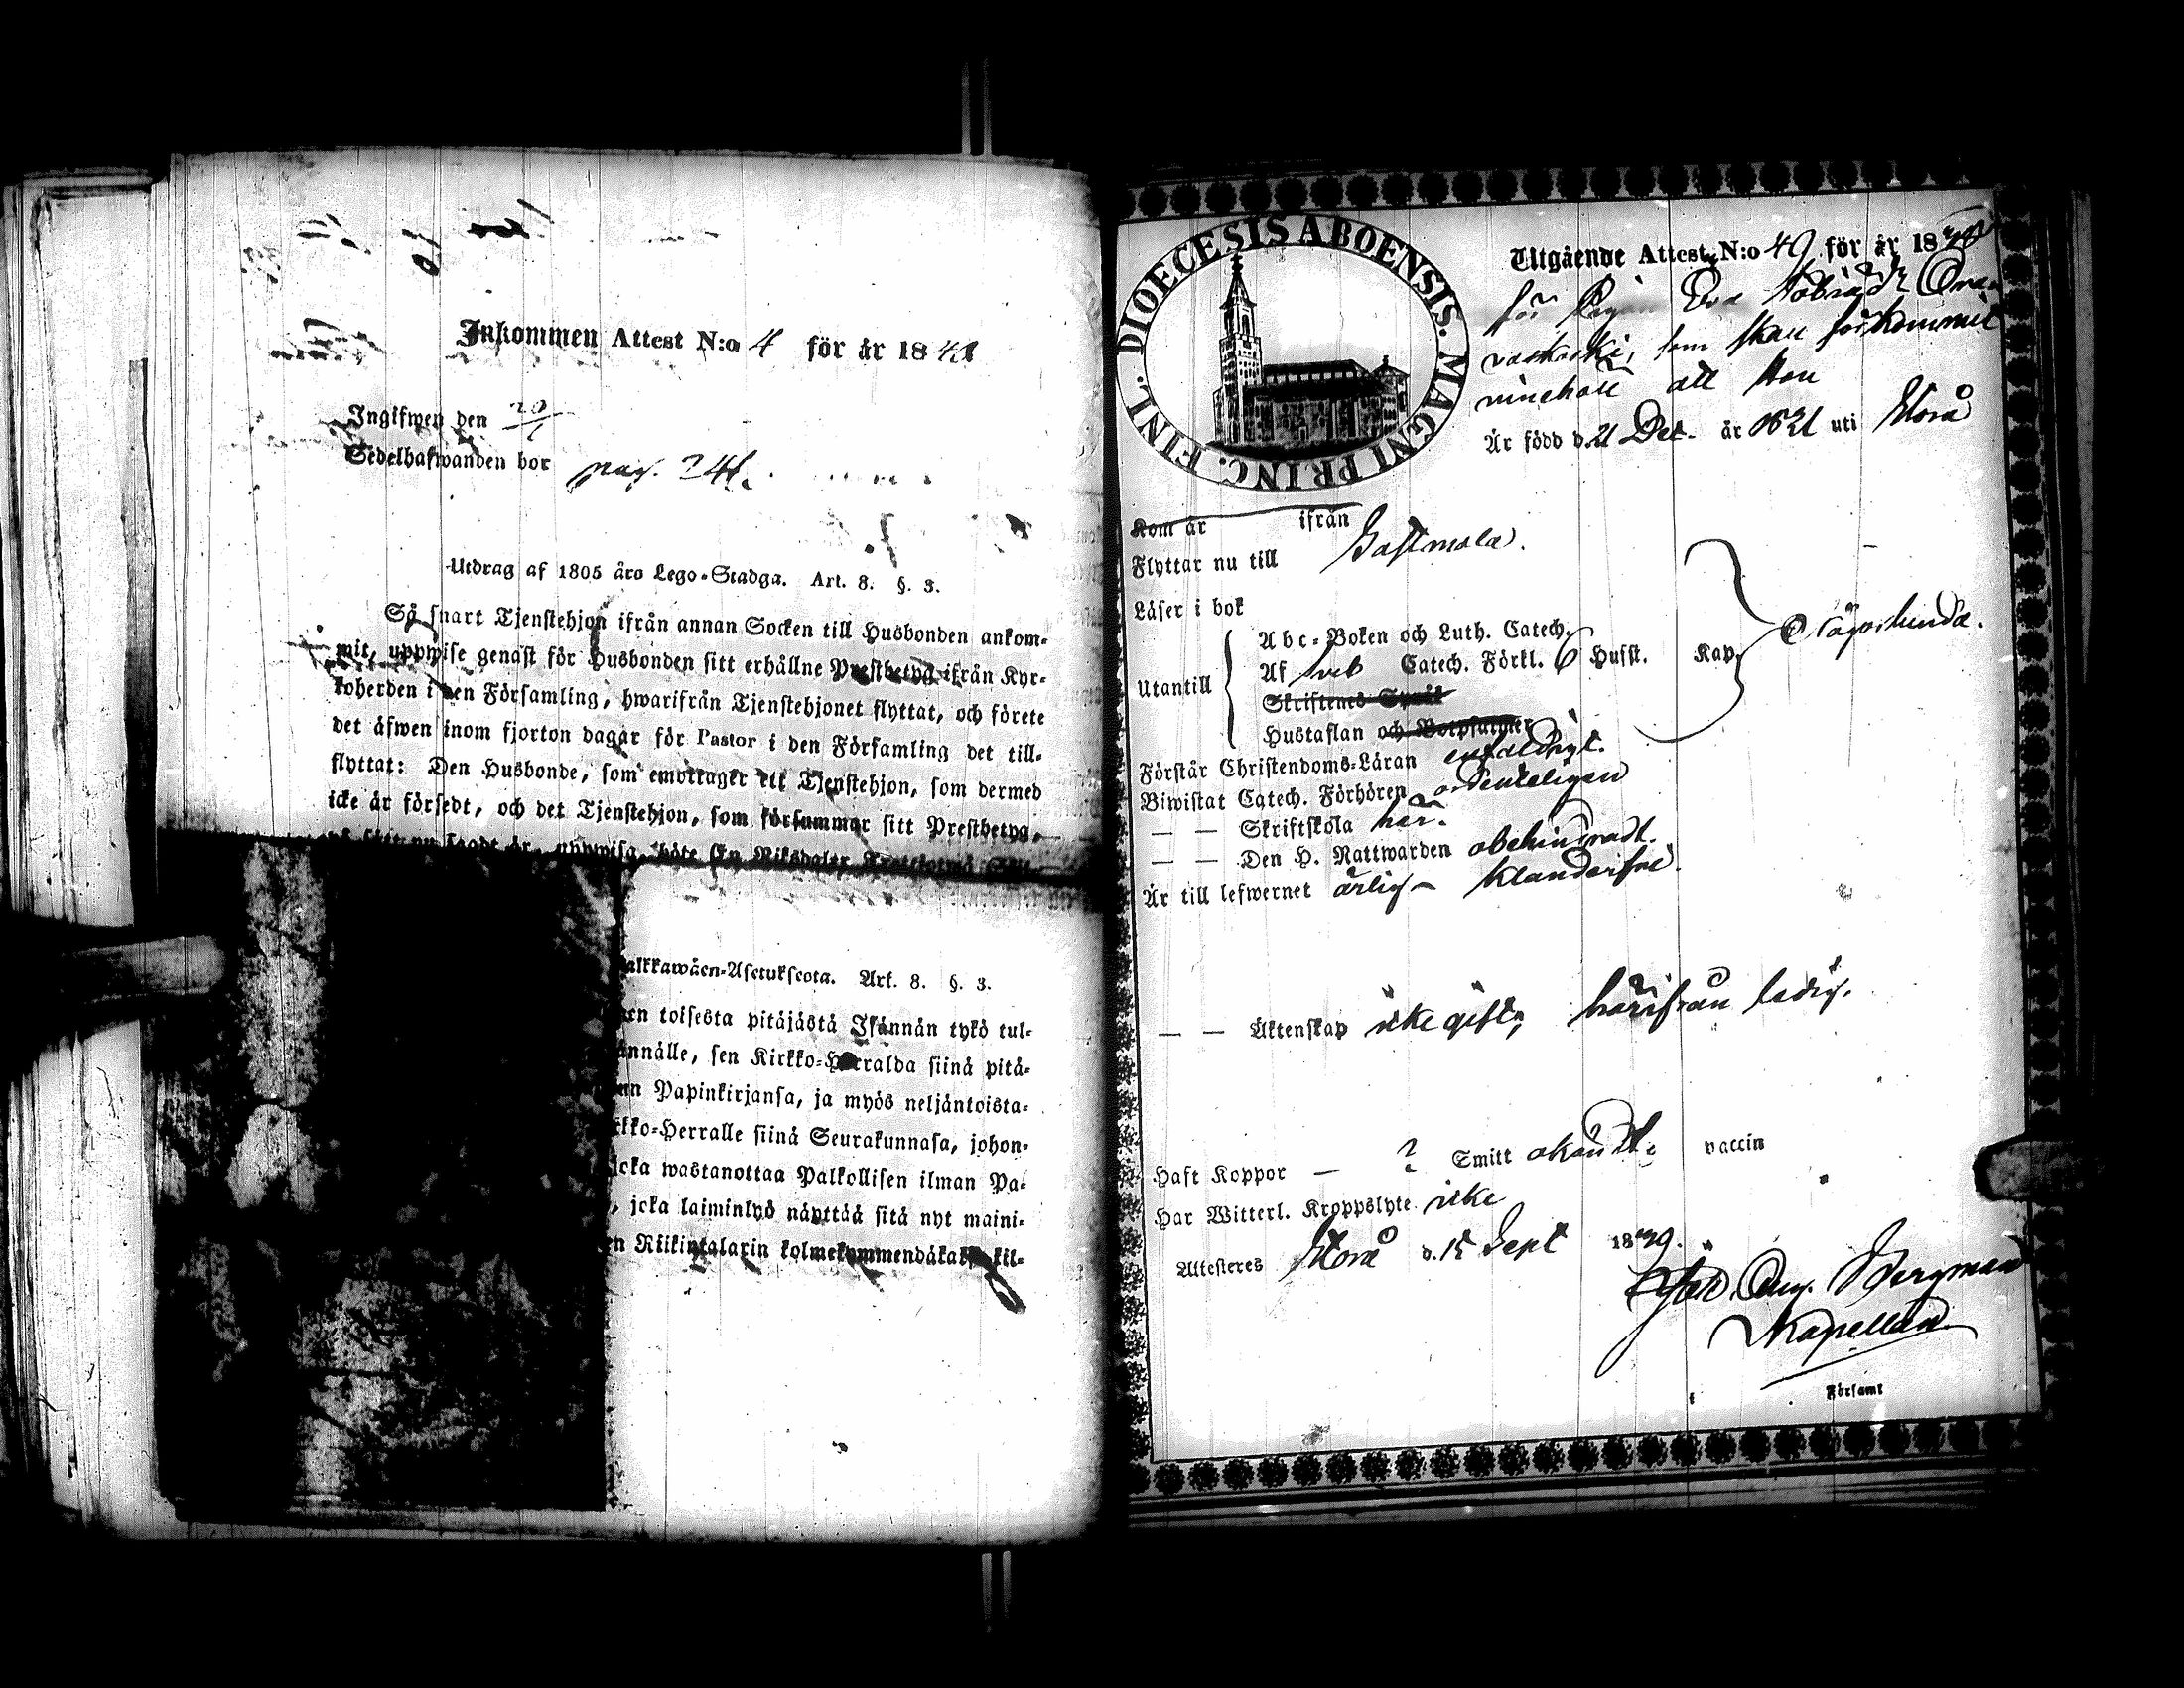 Inkommen Attest N:o 4 för år 1841
Ingifwen den 20/1
Sedelhafwanden bor pag. 241.
Utdrag af 1805 års Lego-Stadga. Art. 8. §. 3.
Så snart Tjenstehjon ifrån annan Socken till Husbonden ankom-
mit, uppwise genast för Husbonden sitt erhållne Prestbetyg ifrån Kyr-
koherden i den Församling, hwarifrån Tjenstehjonet flyttat, och förete
det äfwen inom fjorton dagar för Pastor i den Församling det till-
flyttat: Den Husbonde, som emottager ett Tjenstehjon, som dermed
icke är försedt, och det Tjenstehjon, som försummar sitt Prestbetyg,
sagdt är, uppwisa, böte En Riksdaler
alkkawäen-Asetuksesta. Art. 8. §. 3.
en toisesta pitäjästä Isännän tykö tul-
ännälle, sen Kirkko-Herralda siinä pitä-
un Papinkirjansa, ja myös neljäntoista-
rkko-Herralle siinä Seurakunnasa, johon-
joka wastanottaa Palkollisen ilman Pa-
, joka laiminlyö näyttää sitä nyt maini-
en Riikintalarin kolmekymmendäkaksi kil-
DIOECESIS ABOENSIS. MAGNI PRINC. FINL.
Utgående Attest N:o 49 för år 18
för Pigan Eva
som skall förkommit
att hon
Är född d. 21 Dec. år 1821 uti Storå
Kom år ifrån
Flyttar nu till Sastmola.
Läser i bok
Utantill
Abc-Boken och Luth. Catech.
Af Sveb Catech. Förkl. 6 Hufst. Kap.
Skriftenes Språk
Hustaflan och Botpsalmer
Förstår Christendoms-Läran enfaldigt.
Biwistat Catech. Förhören ordenteligen
— — Skriftskola här.
— — Den H. Nattwarden obehindradt.
Är till lefwernet ärlig klanderfri.
— — Äktenskap icke gift, härifrån ledig.
Haft Koppor — ? Smitt okändt. vaccin
Har Witterl. Kroppslyte icke
Attesteres Storå d. 15 Sept 1839.
Aug. Bergman
Kapellan
Församl